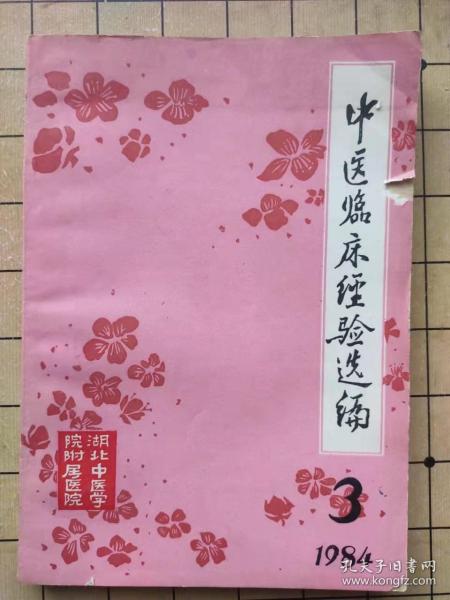 中医临床经验选编
湖北中医学
院附属医院
3
1984
孔夫子旧书网
www.kongfz.com